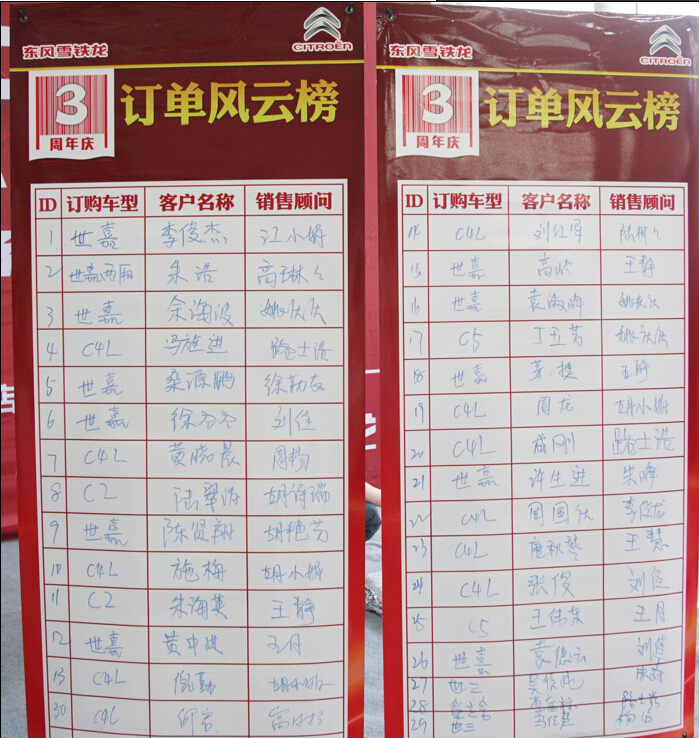 东风雪铁龙
CITROËN
3
周年庆
订单风云榜
ID 订购车型 客户名称 销售顾问
1 世嘉 李俊杰 江小娟
2 世嘉两厢 朱浩 高琳々
3 世嘉 余海波 姚庆庆
4 C4L 冯旌进 路士浩
5 世嘉 桑源鹏 徐劲友
6 世嘉 徐冬冬 刘佳
7 C4L 黄晓晨 周畅
8 C2 陆翠 胡得瑞
9 世嘉 陈贤翔 胡艳芳
10 C4L 施梅 胡小娟
11 C2 朱海英 王静
12 世嘉 黄中 王月
13 C4L 倪勤 胡小娟
30 C4L
东风雪铁龙
CITROËN
3
周年庆
订单风云榜
ID 订购车型 客户名称 销售顾问
14 C4L 刘红军
15 世嘉 高岭 王静
16 世嘉 袁淑峰 姚庆庆
17 C5 丁玉芳 姚庆庆
18 世嘉 王静
19 C4L 周龙 胡小娟
20 C4L 成刚 路士浩
21 世嘉 许生进 朱峰
22 C4L 周国庆 李俊龙
23 C4L 唐秋琴 王慧
24 C4L 张俊 刘佳
25 C5 王伟东 王月
26 世嘉 袁德云 刘佳
27 世三
28
29 世三